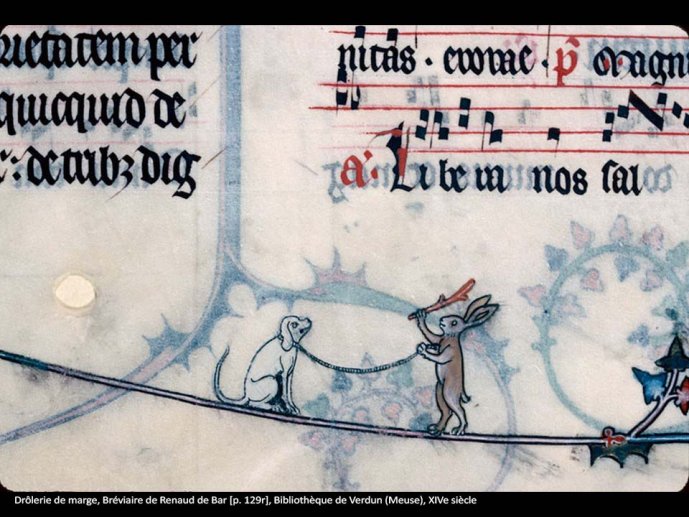 rietatem per
quicquid de
: de trib⁊ dig
nitas · euouae · p̄ magn
a: Libera nos sal
Drôlerie de marge, Bréviaire de Renaud de Bar [p. 129r], Bibliothèque de Verdun (Meuse), XIVe siècle